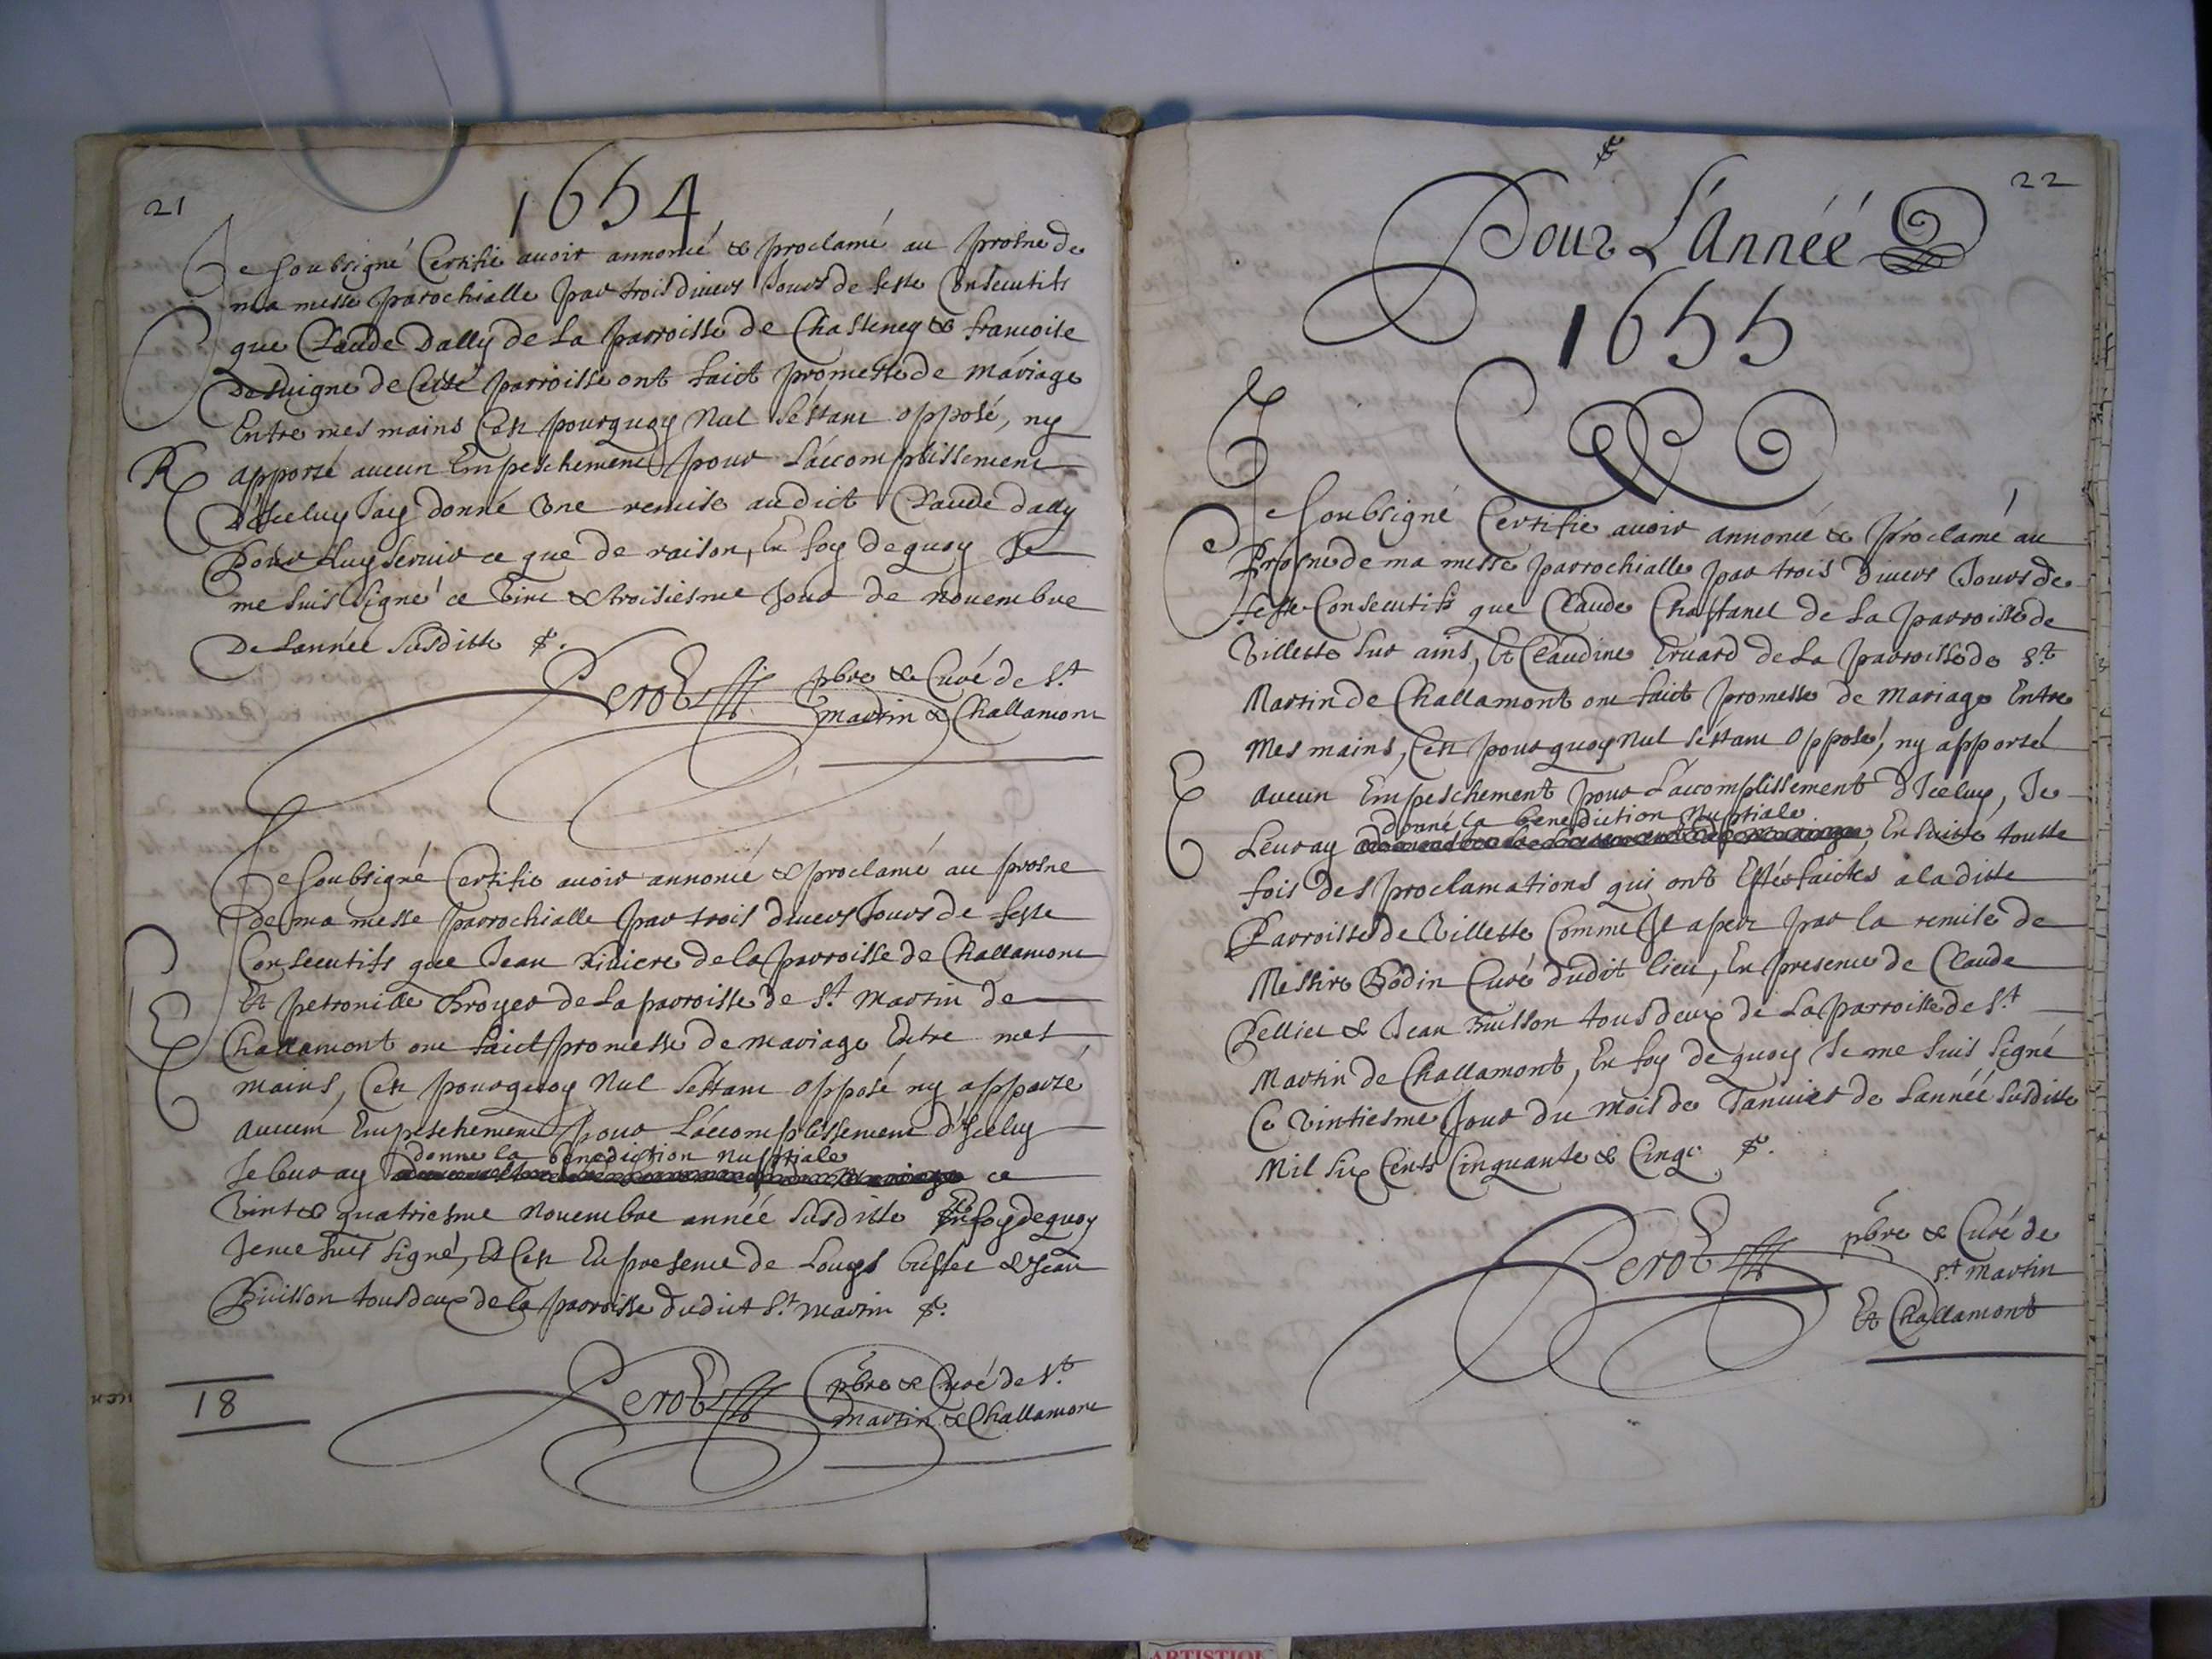 21
1654
Je soubsigné Certifie avoir annoncé & proclamé au prosne de
ma messe parochialle par trois divers Jours de feste Consecutifs
que Claude Dally de La parroisse de Chasteney & francoise
de Cette parroisse ont faict promesse de mariage
Entre mes mains C'est pourquoy Nul s'estant opposé, ny
R apporté aucun Empeschement pour L'accomplissement
D'Iceluy J'ay donné Une remise audict Claude dally
Pour Luy servir ce que de raison, En foy de quoy Je
me suis signé ce Vint & troisiesme Jour de novembre
De Lannée susditte &.
Perot pbre & Curé de St
martin & Challamont
Je soubsigné Certifie avoir annoncé & proclamé au prosne
de ma messe parrochialle par trois divers Jours de feste
Consecutifs que Jean Riviere de la parroisse de Challamont
Et petronille Broyer de La parroisse de St Martin de
Challamont ont faict promesse de mariage Entre mes
mains, C'est pourquoy Nul s'estant opposé ny apporté
aucun Empeschement pour L'accomplissement d'Iceluy
donné la benediction Nuptiale
Je leur ay ce
Vint & quatriesme Novembre année susditte En foy de quoy
Je me suis signé, Et C'est En presence de Louys & Jean
Buisson tous deux de la parroisse dudict St martin &.
Perot pbre & Curé de St
martin & Challamont
18
22
Pour L'Année
1655
Je soubsigné Certifie avoir annoncé & proclamé au
Prosne de ma messe parrochialle par trois divers Jours de
feste Consecutifs que Claude Chastanel de La parroisse de
Villette sur ains, Et Claudine Evrard de La parroisse de St
Martin de Challamont ont faict promesse de Mariage Entre
Mes mains, C'est pourquoy Nul s'estant opposé, ny apporté
Aucun Empeschement pour L'accomplissement d'Iceluy, Je
donné la benediction Nuptiale
Leur ay , En suitte toutte
fois des proclamations qui ont Estés faictes a la ditte
Parroisse de Villette Comme Il apert par la remise de
Messire Bodin Curé dudit lieu, En presence de Claude
Pellier & Jean Buisson tous deux de La parroisse de St
Martin de Challamont, En foy de quoy Je me suis signé
Ce Vintiesme Jour du Mois de Janvier de Lannée susditte
Mil six Cents Cinquante & Cinq &.
Perot pbre & Curé de
St Martin
Et Challamont